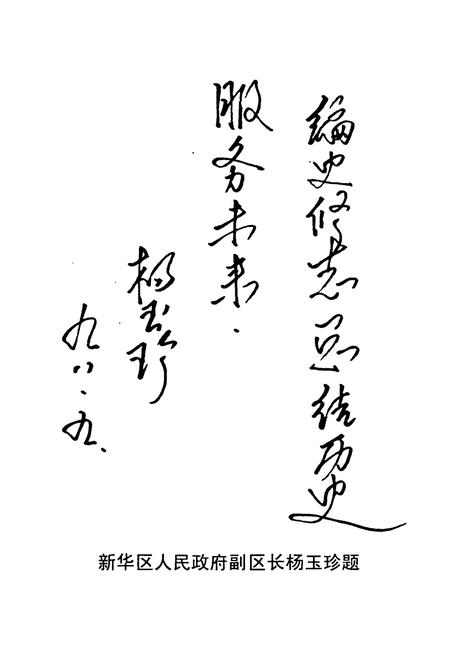 编史修志总结历史
服务未来.
杨玉珍
九八.九.
新华区人民政府副区长杨玉珍题